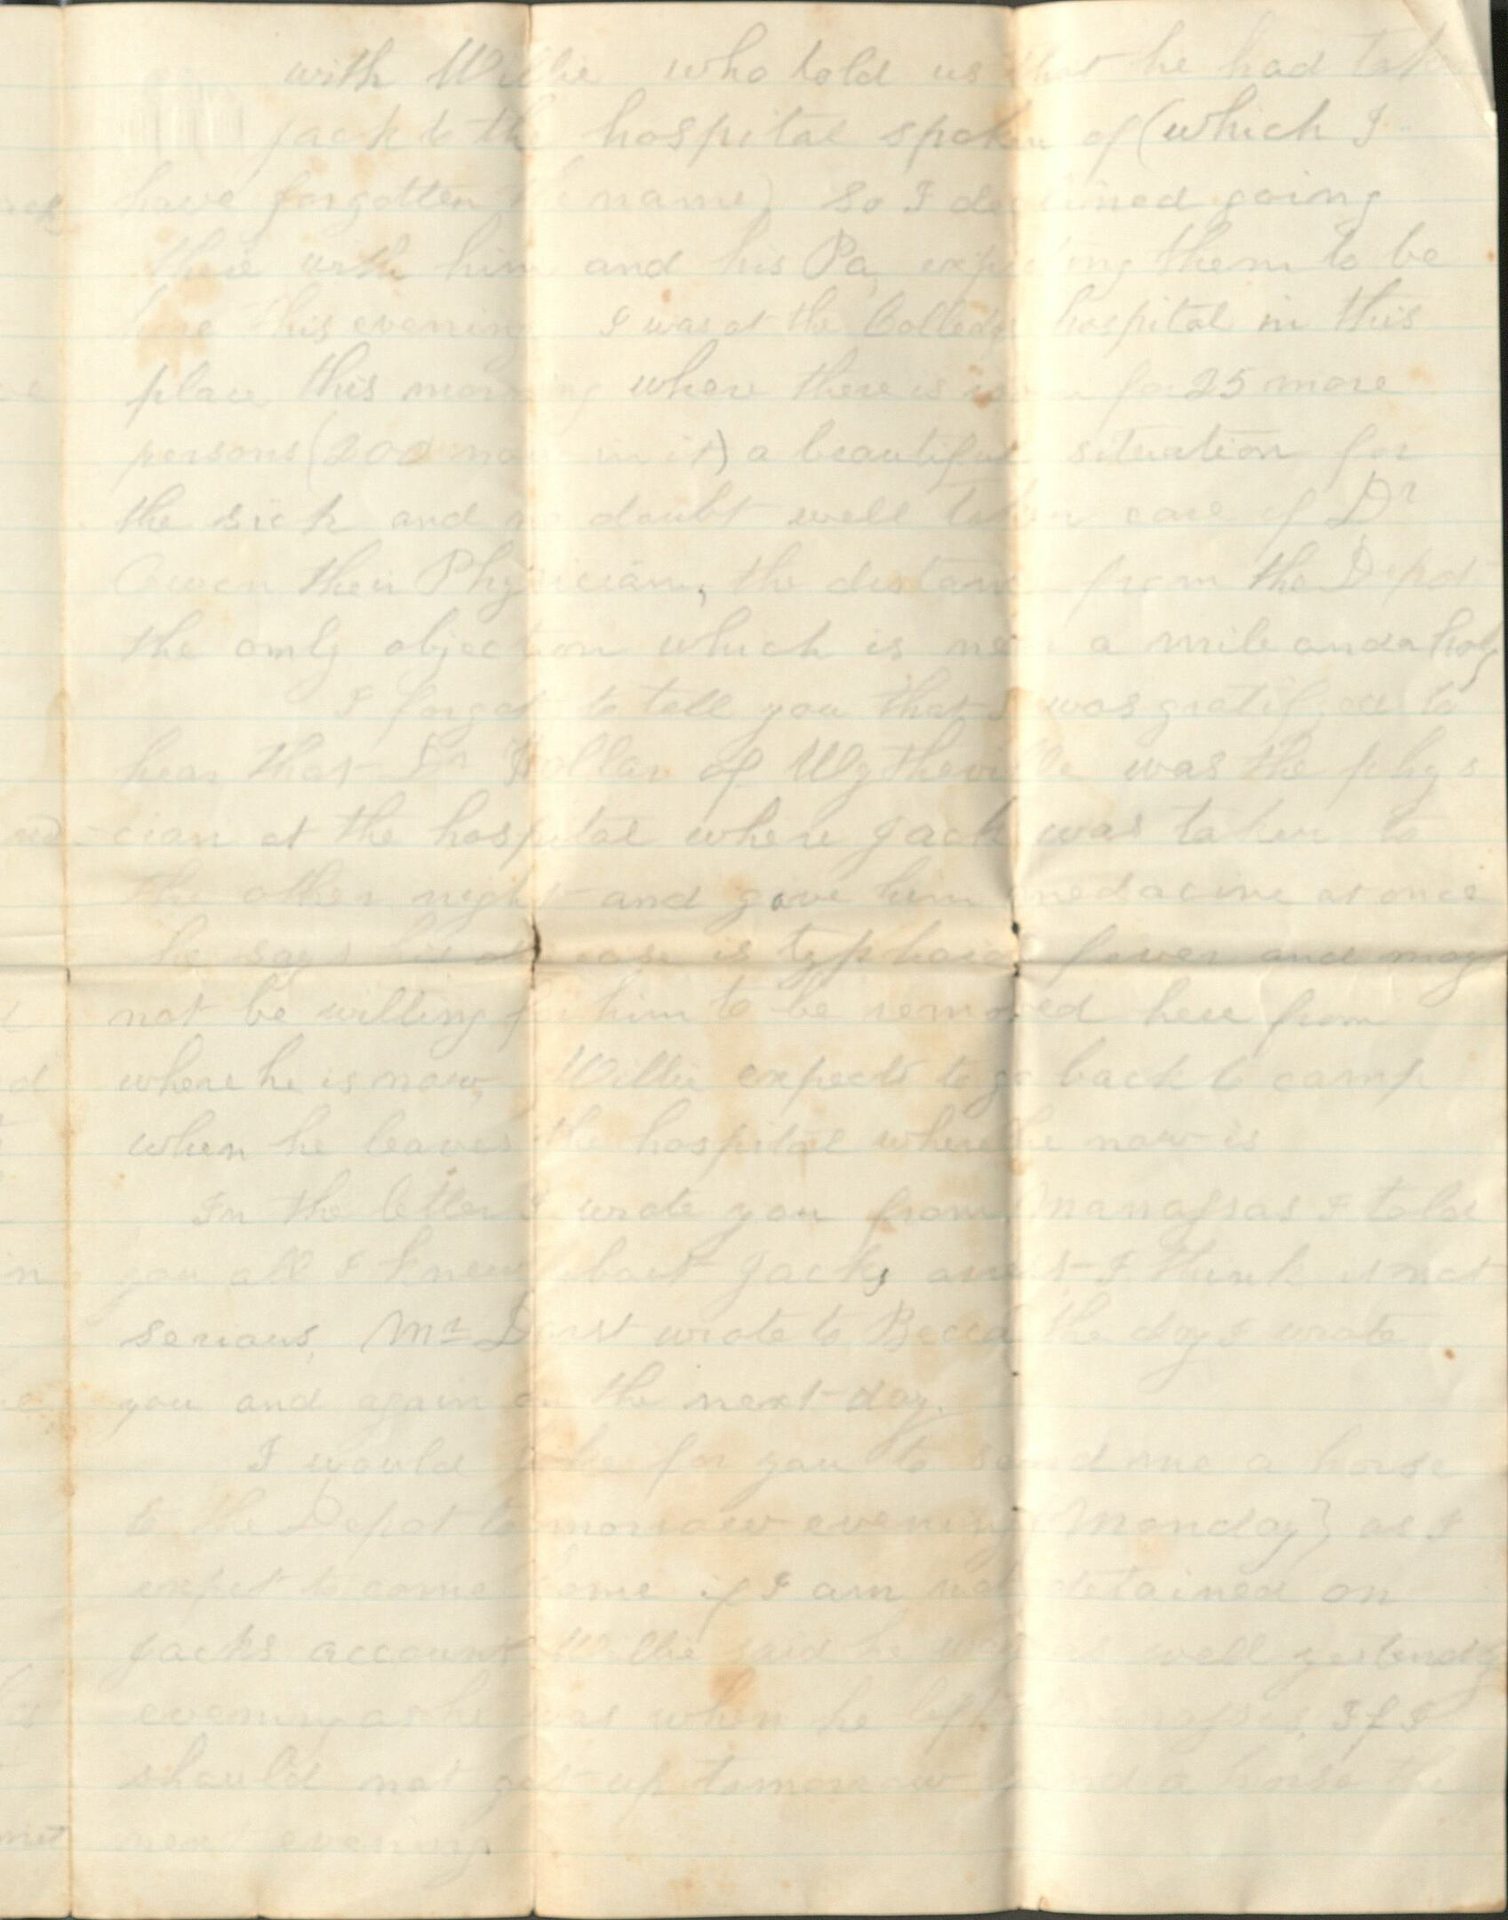 with Willie who told us that he had taken
Jack to the hospital spoken of (which I
have forgotten the name) So I declined going
there with him and his Pa, expecting them to be
here this evening I was at the Colledge hospital in this
place this morning where there is room for 25 more
persons (200 now in it) a beautiful situation for
the sick and no doubt well taken care of Dr
Owen their Physician, the distance from the Depot
the only objection which is near a mile and a half
I forgot to tell you that I was gratified to
hear that Dr Hollan of Wytheville was the phys
cian at the hospital where Jack was taken to
the other night and gave him medacine at once
he says his disease is typhoid fever and may
not be willing for him to be removed here from
where he is now, Willie expects to go back to camp
when he leaves the hospital where he now is
In the letter I wrote you from Manassas I told
you all I knew about Jack, and I think is not
serious, Mr Dorst wrote to Becca the day I wrote
you and again on the next day.
I would like for you to send me a horse
to the Depot tomorrow evening (Monday) as I
expect to come home if I am not detained on
Jacks account Willie said he was as well yesterday
evening as he was when he left Manassas, If I
should not get up tomorrow send a horse the
next evening